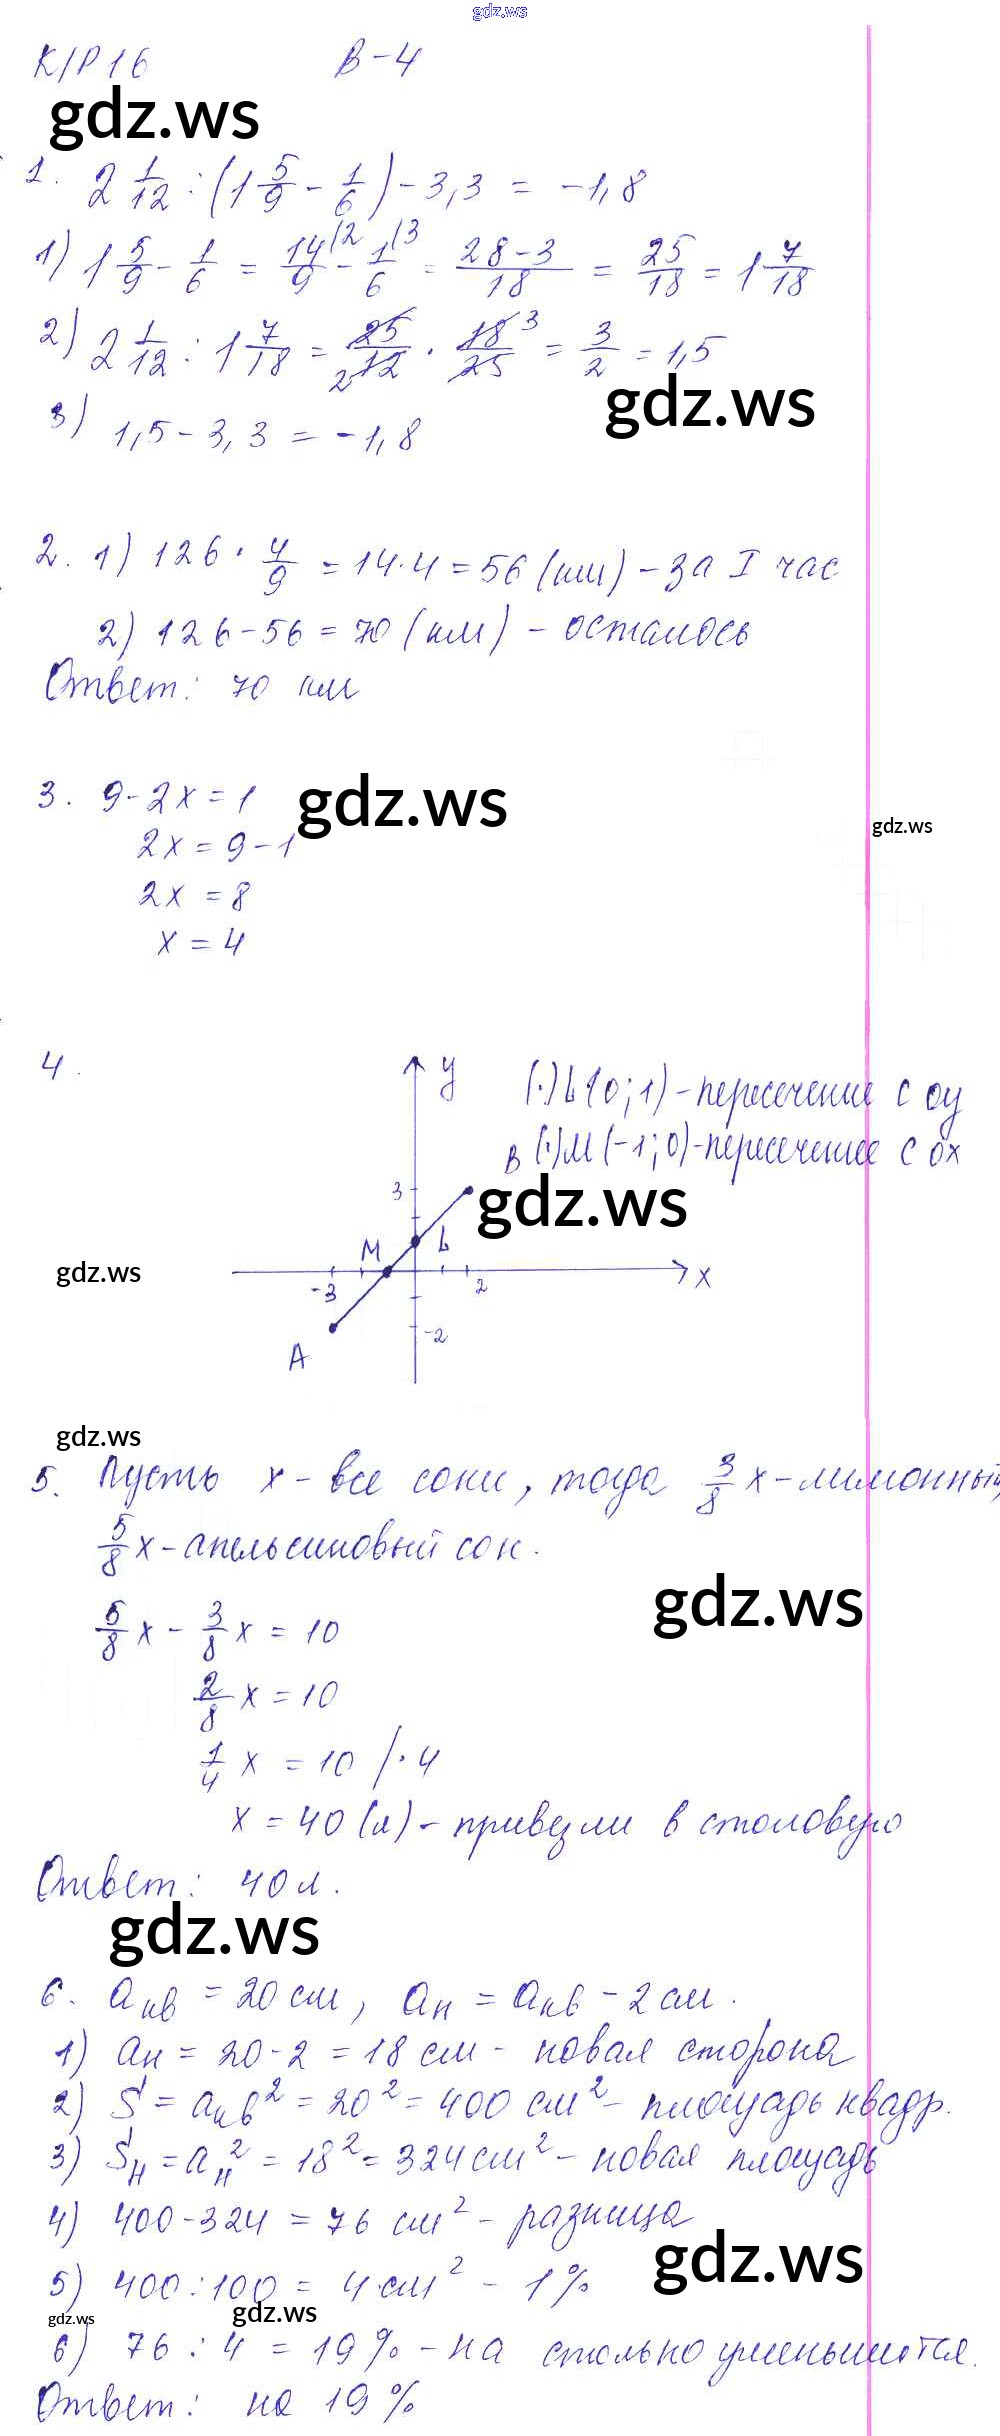 gdz.ws
К/Р 16 В-4
gdz.ws
1. 2 1/12 : (1 5/9 - 1/6) - 3,3 = -1,8
1) 1 5/9 - 1/6 = 14/9 (2 - 1/6 (3 = 28-3/18 = 25/18 = 1 7/18
2) 2 1/12 : 1 7/18 = 25/12 2 · 18/25 3 = 3/2 = 1,5
gdz.ws
3) 1,5 - 3,3 = -1,8
2. 1) 126 · 4/9 = 14·4 = 56 (км) - за I час
2) 126 - 56 = 70 (км) - осталось
Ответ: 70 км
3. 9 - 2x = 1
gdz.ws
gdz.ws
2x = 9 - 1
2x = 8
x = 4
4.
y
(·) L (0; 1) - пересечение с oy
(·) M (-1; 0) - пересечение с ox
B
3
gdz.ws
M L
gdz.ws
-3 2 x
-2
A
gdz.ws
5. Пусть x - все соки, тогда 3/8 x - лимонный,
5/8 x - апельсиновый сок.
gdz.ws
5/8 x - 3/8 x = 10
2/8 x = 10
1/4 x = 10 / · 4
x = 40 (л) - привезли в столовую
Ответ: 40 л.
gdz.ws
6. aкв = 20 см, aн = aкв - 2 см.
1) aн = 20 - 2 = 18 см - новая сторона
2) S = aкв² = 20² = 400 см² - площадь квадр.
3) Sн = aн² = 18² = 324 см² - новая площадь
4) 400 - 324 = 76 см² - разница
gdz.ws
5) 400 : 100 = 4 см² - 1 %
gdz.ws
gdz.ws
6) 76 : 4 = 19 % - на столько уменьшится.
Ответ: на 19 %